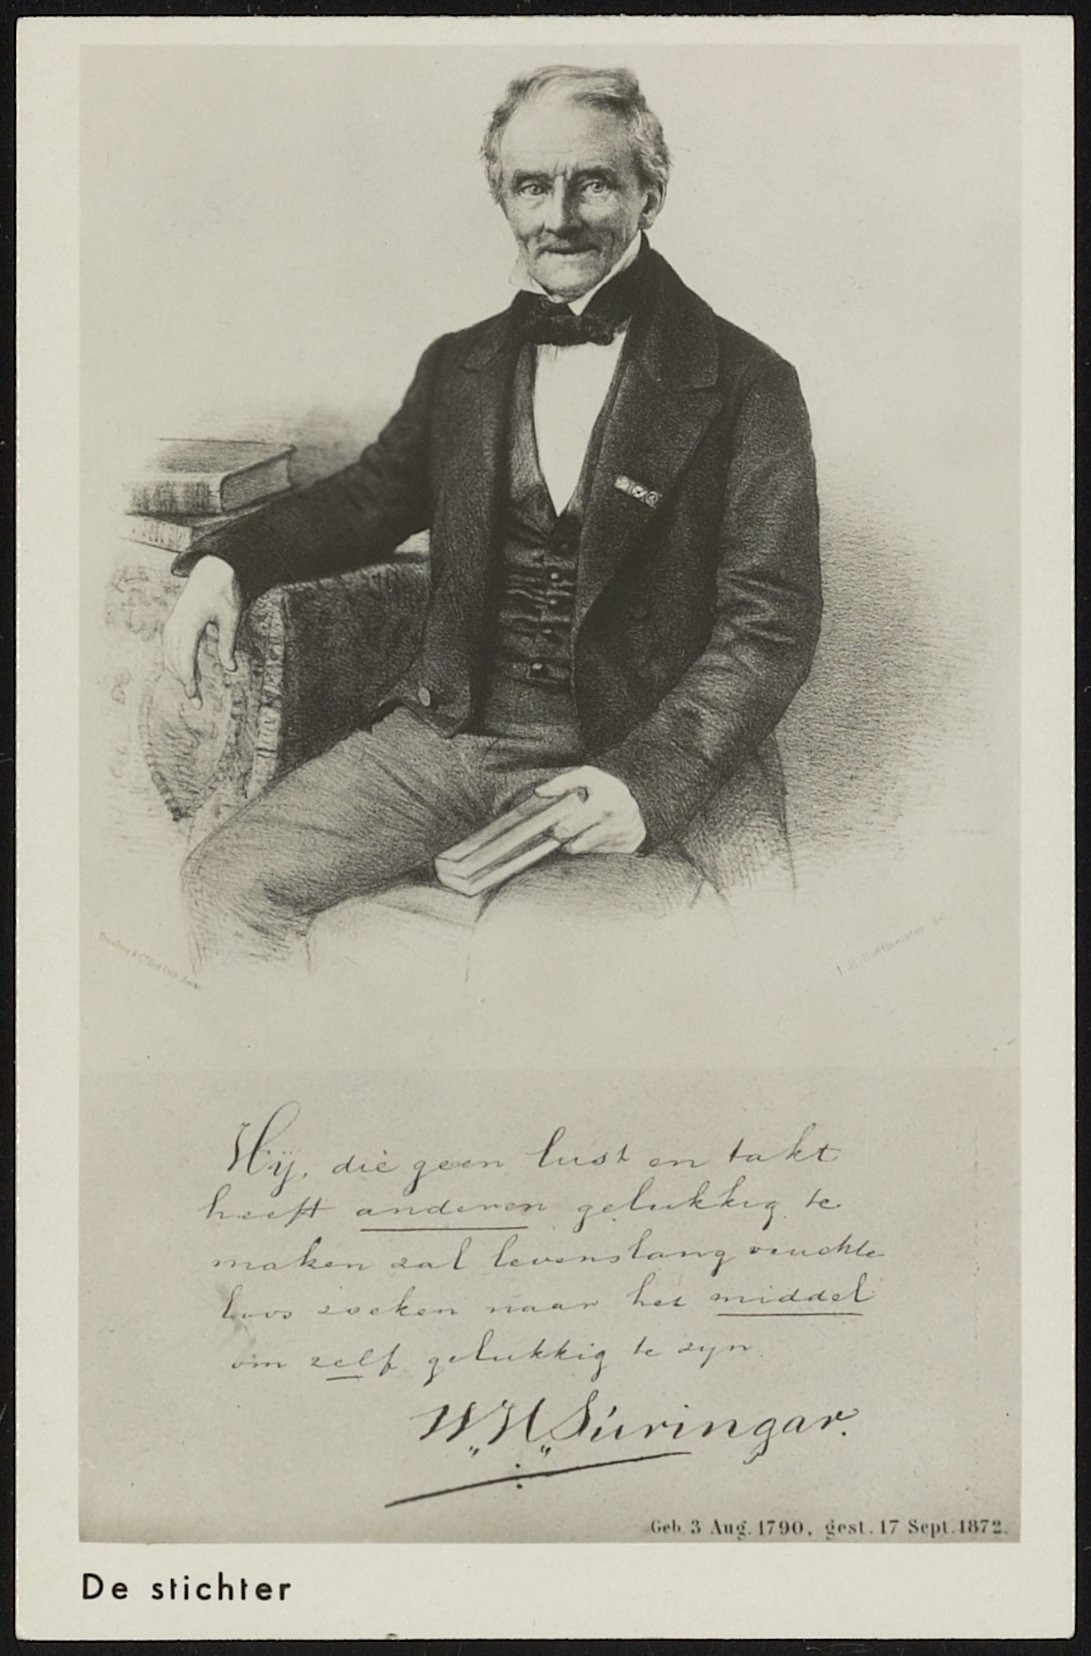 Hÿ, die geen lust en takt
heeft anderen gelukkig te
maken zal levenslang vruchte
loos zoeken naar het middel
om zelf gelukkig te zyn
W.H. Suringar.
Geb. 3 Aug. 1790, gest. 17 Sept. 1872.
De stichter